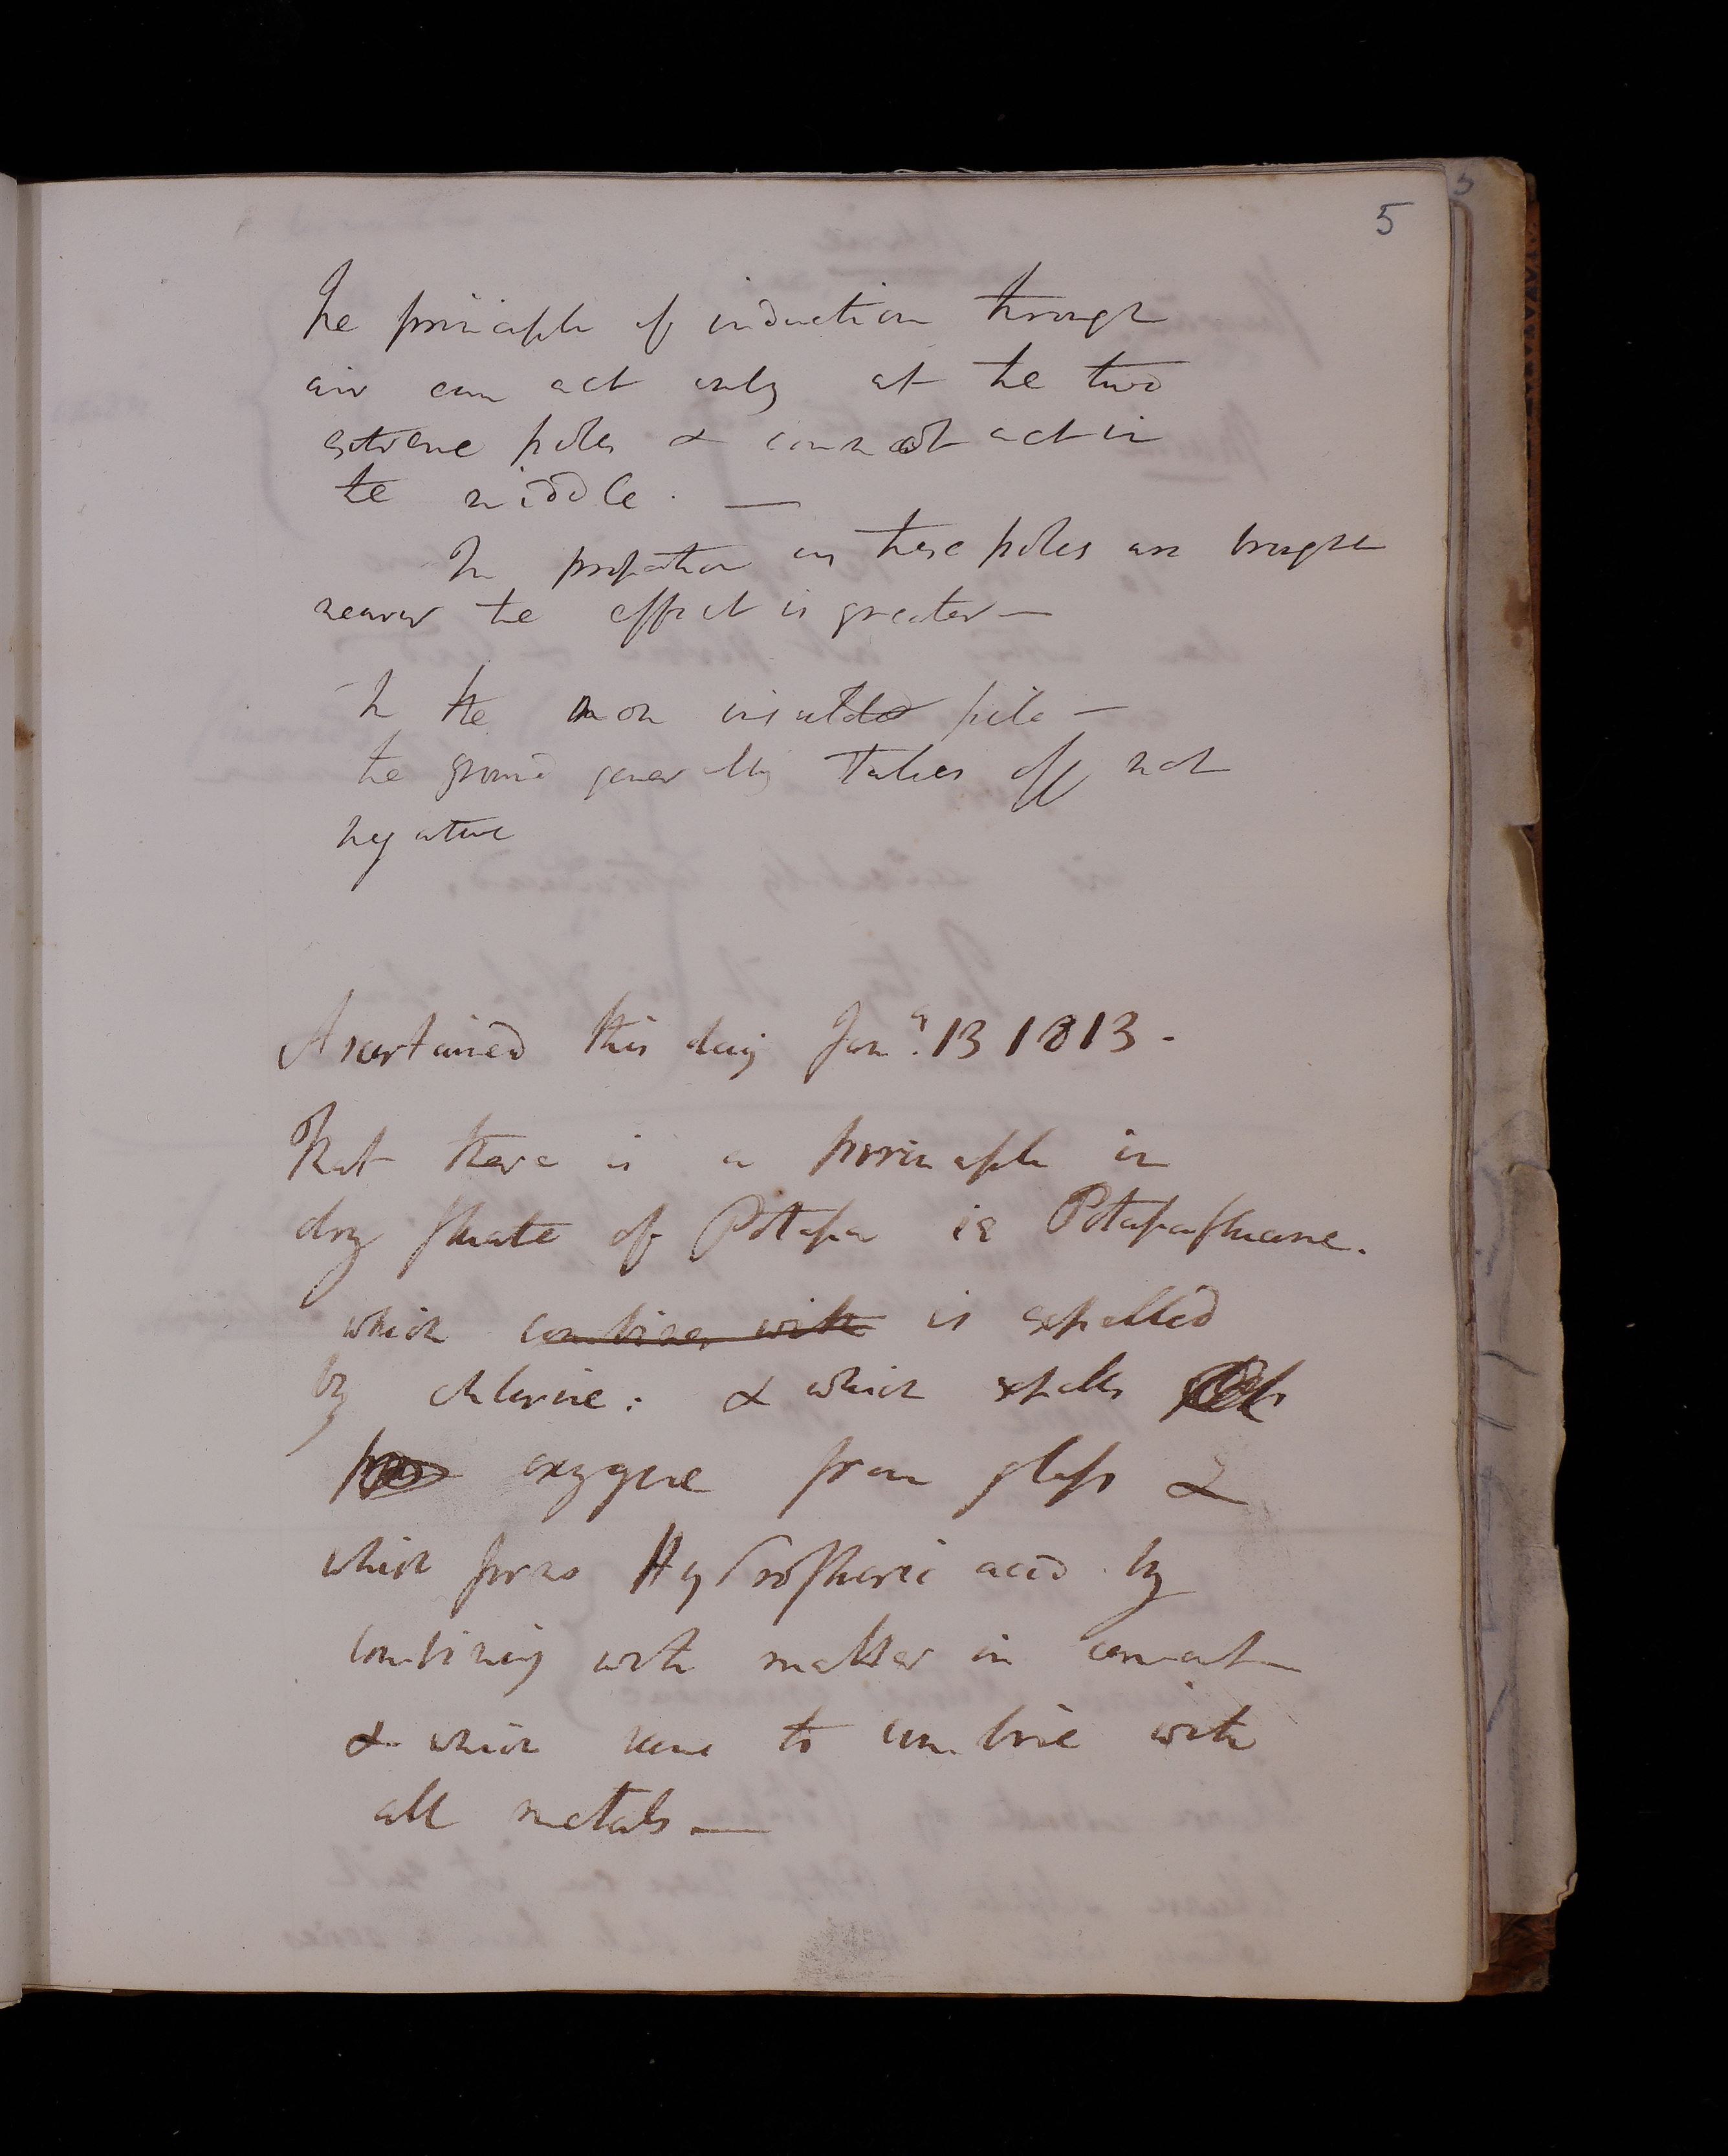 5
The principle of induction through
air can act only at the two
extreme poles & cannot act in
the middle. —
In proportion as these poles are brought
nearer the effect is greater —
In the non insulated pile —
the ground generally takes off not
negative
Ascertained this day Jany. 13 1813.
That there is a principle in
dry fluate of Potassa ie Potassafluane.
which combines with is expelled
by chlorine: & which expells
oxygene from glass &
which forms Hydrofluoric acid by
combining with matter in
& which seems to combine with
all metals —